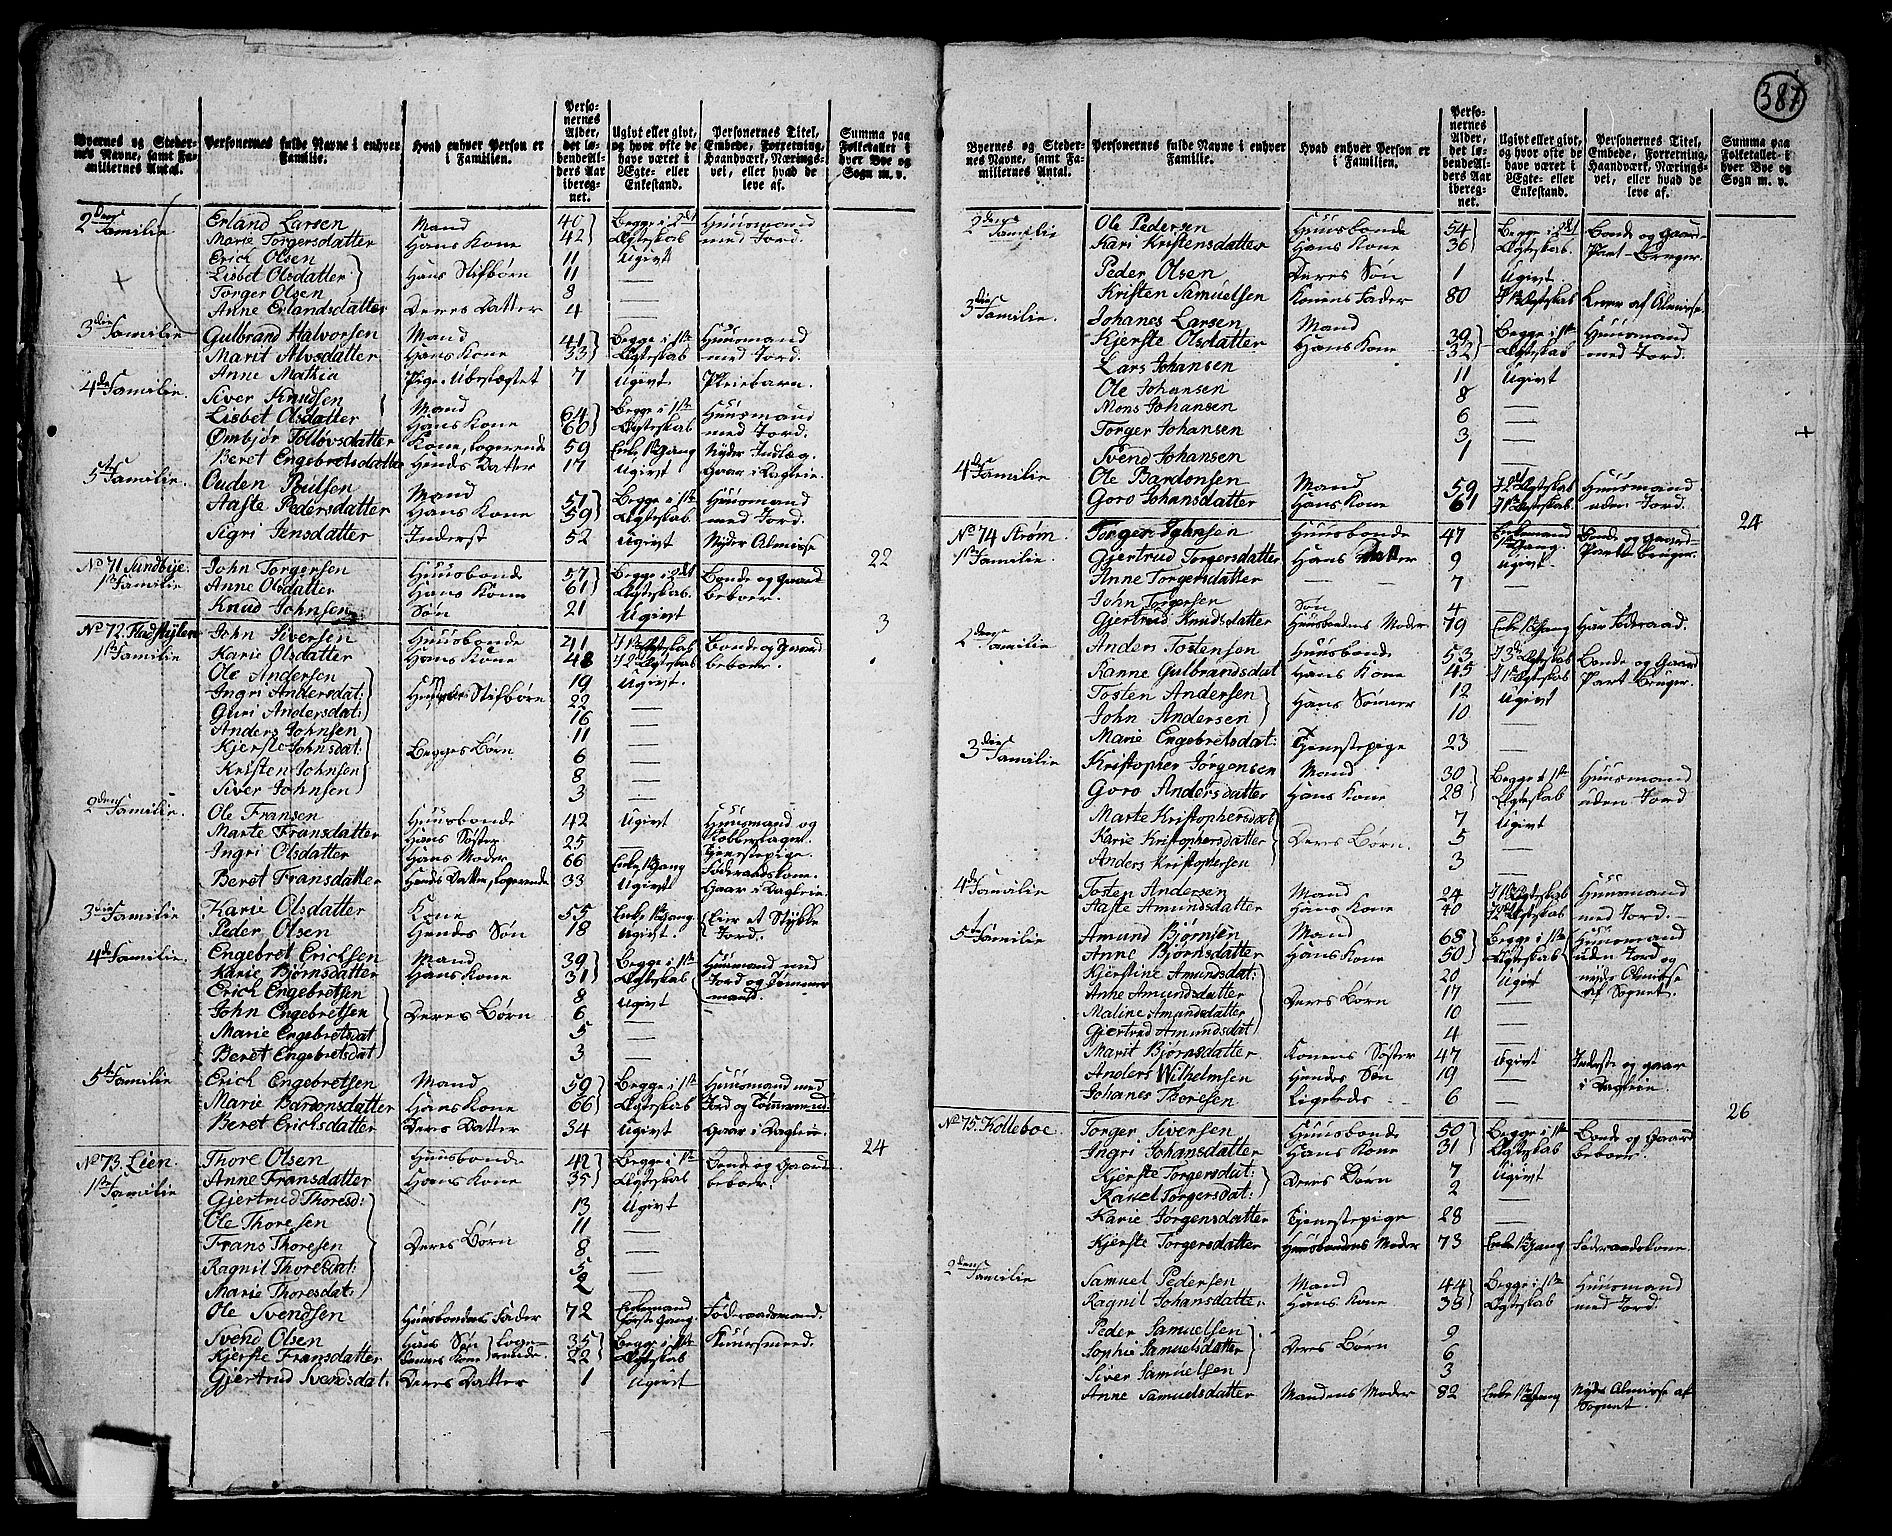 387
Byernes og Steder-
nes Navne, samt Fa-
milliernes Antal.
Personernes fulde Navne i enhver
Familie.
Hvad enhver Person er
i Familien.
Perso-
nernes
Alder,
det lø-
bende Al-
ders Aar
ibereg-
net.
Ugivt eller givt,
og hvor ofte de
have været i
Ægte- eller
Enkestand.
Personernes Titel,
Embede, Forretning,
Haandværk, Nærings-
vei, eller hvad de
leve af.
Summa paa
Folketallet i
hver Bye og
Sogn m. v.
2den Familie Erland Larsen Mand 40 Begge i 2det Huusmand
Marie Torgersdatter Hans Kone 42 Ægteskab med Jord.
Erich Olsen 11 Ugivt
Lisbet Olsdatter Hans Stifbörn 11 —
Torger Olsen 8 —
Anne Erlandsdatter Deres Datter 4 —
3die Familie Gulbrand Halvorsen Mand 41 Begge i 1ste Huusmand
Marit Alvsdatter Hans Kone 33 Ægteskab med Jord.
Anne Mathia Pige Ubeslægtet 7 Ugivt Pleiebarn.
4de Familie Siver Knudsen Mand 64 Begge i 1ste Huusmand
Lisbet Olsdatter Hans Kone 60 Ægteskab med Jord.
Ombjör Tolløvsdatter Kone, logerende 59 Enke 1ste Gang Nyder Indlæg.
Beret Engebretsdatter Hendes Datter 17 Ugivt Gaar i Dagleie.
5te Familie Ouden Poulsen Mand 51 Begge i 1ste Huusmand
Aaste Pedersdatter Hans Kone 59 Ægteskab med Jord.
Sigri Jensdatter Inderst 52 Ugivt Nyder Almisse
22
No 71 Sundbye John Torgersen Huusbonde 57 Begge i 2det Bonde og Gaard
1ste Familie Anne Olsdatter Hans Kone 61 Ægteskab. beboer.
Knud Johnsen Søn 21 Ugivt
3
No 72 John Siversen Huusbonde 41 I 1ste Ægteskab Bonde og Gaard
1ste Familie Karie Olsdatter Hans Kone 48 I 2det Ægteskab beboer.
Ole Andersen 19 Ugivt.
Ingri Andersdat: Stifbörn 22 —
Guri Andersdat: 16 —
Anders Johnsen 11 —
Kjerste Johnsdat: Begges Børn 6 —
Kristen Johnsen 8 —
Siver Johnsen 3 —
2den Familie. Ole Fransen Huusbonde 42 Ugivt Huusmand og
Kobberslager.
Marte Fransdatter Hans Søster 25 — Tjenestepige.
Ingri Olsdatter Hans Moder 66 Enke 1ste Gang Föderaadskone.
Beret Fransdatter Hends Datter, logerende 33 Ugivt Gaar i Dagleie.
3die Familie Karie Olsdatter Kone 55 Enke 1ste Gang Eier et Stykke
Peder Olsen Hendes Søn 18 Ugivt. Jord.
4de Familie. Engebret Erichsen Mand 39 Begge i 1ste Huusmand med
Karie Bjørnsdatter Hans Kone 31 Ægteskab Jord og Tømmer-
mand.
Erich Engebretsen 8 Ugivt
John Engebretsen Deres Børn 6 —
Marie Engebretsdat 5 —
Beret Engebretsdat 3 —
5te Familie Erich Engebretsen Mand 59 Begge i 1ste Huusmand med
Marie Bardonsdatter Hans Kone 66 Ægteskab Jord og Tømmermand.
Beret Erichsdatter Deres Datter 34 Ugivt Gaar i Dagleie.
24
No 73. Lien. Thore Olsen Huusbonde 42 Begge i 1ste Bonde og Gaard
1ste Familie Anne Fransdatter Hans Kone 35 Ægteskab beboer.
Gjertrud Thoresd: 13 Ugivt
Ole Thoresen 11 —
Frans Thoresen Deres Børn 8 —
Ragnil Thoresdat: 5 —
Marie Thoresdat: 2 —
Ole Svendsen Huusbondens Fader 72 Enkemand Föderaadsmand.
Første Gang.
Svend Olsen Hans Søn 35 Begge i 1ste
Kjerste Fransdatter Dennes Kone 22 Ægteskab
Gjertrud Svendsdat: Deres Datter 1 Ugivt
Byernes og Steder-
nes Navne, samt Fa-
milliernes Antal.
Personernes fulde Navne i enhver
Familie.
Hvad enhver Person er
i Familien.
Perso-
nernes
Alder,
det lø-
bende Al-
ders Aar
ibereg-
net.
Ugivt eller givt,
og hvor ofte de
have været i
Ægte- eller
Enkestand.
Personernes Titel,
Embede, Forretning,
Haandværk, Nærings-
vei, eller hvad de
leve af.
Summa paa
Folketallet i
hver Bye og
Sogn m. v.
2den Familie Ole Pedersen Huusbonde 54 Begge i 2det Bonde og Gaard-
Kari Kristensdatter Hans Kone 36 Ægteskab. Part-Bruger.
Peder Olsen Deres Søn 1 Ugivt
Kristen Samuelsen Konens Fader 80 I 1ste Ægteskab Lever af Almisse.
3die Familie. Johanes Larsen Mand 39 Begge i 1ste Huusmand
Kjerste Olsdatter Hans Kone 32 Ægteskab med Jord.
Lars Johansen 11 Ugivt
Ole Johansen 8
Mons Johansen 6 —
Torger Johansen 3 —
Svend Johansen 1 —
4de Familie Ole Bardonsen Mand 59 I 2det Ægteskab Huusmand
Goro Johansdatter Hans Kone 61 I 1ste Ægteskab. uden Jord.
24
No 74 Strøm. Torger Johnsen Huusbonde 47 Enkemand Bonde og Gaard-
1ste Gang. Part Bruger.
1ste Familie Gjertrud Torgersdatter Hans Datter 9 Ugivt
Anne Torgersdatter — 7 —
John Torgersen Søn 4
Gjertrud Knudsdatter Huusbondens Moder 79 Enke 1ste Gang Har Føderaad.
2den Familie Anders Tostensen Huusbonde 53 I 3die Ægteskab Bonde og Gaard
Ranne Gulbrandsdat Hans Kone 45 I 1ste Ægteskab Part Bruger.
Tosten Andersen 12 Ugivt
John Andersen Hans Sønner 10 —
Marie Engebretsdat: Tjenestepige 23 —
3die Familie Kristopher Jørgensen Mand 30 Begge i 1ste Huusmand
Goro Andersdatter Hans Kone 28 Ægteskab uden Jord
Marte Kristophersdat 7 Ugivt
Karie Kristophersdatter Deres Børn. 5 —
Anders Kristophersen 3 —
4de Familie Tosten Andersen Mand 24 I 1ste Ægteskab Huusmand
Aaste Amundsdatter Hans Kone 40 I 2det Ægteskab med Jord.
5te Familie Amund Bjørnsen Mand 68 Begge i 1ste Huusmand
Anne Bjørnsdatter Hans Kone 50 Ægteskab uden Jord og
Kjerstine Amundsdat: 20 Ugivt nyder Almisse
Anne Amundsdatter Deres Börn 17 — af Sognet.
Maline Amundsdatter 10 —
Gjertrud Amundsdat 4 —
Marit Bjørnsdatter Konens Søster 47 Ugivt Inderste og gaar
Anders Wilhelmsen Hendes Søn 19 — i Dagleie.
Johanes Thoresen Ligeledes 6 —
26
No 75. Kolleboe. Torger Siversen Huusbonde 50 Begge i 1ste Bonde og Gaard
Ingri Johansdatter Hans Kone 31 Ægteskab beboer.
Kjerste Torgersdat: Deres Børn 7 Ugivt
Torgersdat: 2 —
Karie Jørgensdatter Tjenestepige 28 —
Kjerste Torgersdatter Huusbondens Moder 73 Enke 1ste Gang Föderaadskone.
2den Familie Samuel Pedersen Mand 44 Begge i 1ste Huusmand
Ragnil Johansdatter Hans Kone 38 Ægteskab med Jord.
Peder Samuelsen 9
Sophie Samuelsdatter Deres Børn 6
Siver Samuelsen 3
Anne Samuelsdatter Mandens Moder 82 Enke 1ste Gang Nyder Almisse af
Sognet.